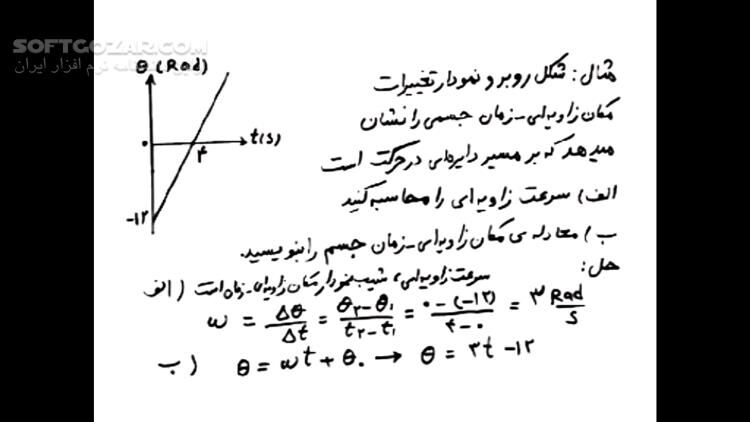 SOFTGOZAR.COM
نامه نرم افزار ایران
θ (Rad)
t(s)
۰
۴
-۱۲
مثال: شکل روبرو نمودار تغییرات
مکان زاویه‌ای-زمان جسمی را نشان
میدهد که بر مسیر دایره‌ای در حرکت است
الف) سرعت زاویه‌ای را محاسبه کنید
ب) معادله‌ی مکان زاویه‌ای-زمان جسم را بنویسید.
حل:
الف) سرعت زاویه‌ای، شیب نمودار مکان زاویه‌ای-زمان است
ω = Δθ/Δt = (θ۲-θ۱)/(t۲-t۱) = (۰-(-۱۲))/(۴-۰) = ۳ Rad/s
ب) θ = ωt + θ۰ → θ = ۳t -۱۲